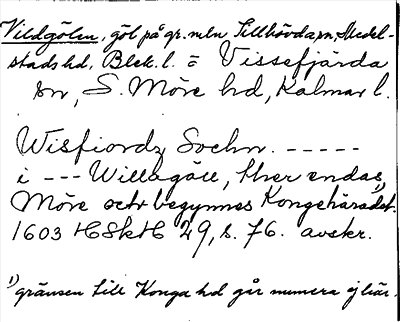 Vildgölen, göl på gr. mln Tillhövda sn, Medel-
stads hd, Blek. l. = Vissefjärda
sn, S. Möre hd, Kalmar l.
Wisfiordz Sochn. -----
i --- Willagöll, ther endas 1)
Möre och begynnes Kongehäradet.
1603 HSkH 29, s. 76. avskr.
1) gränsen till Konga hd går numera ej här.